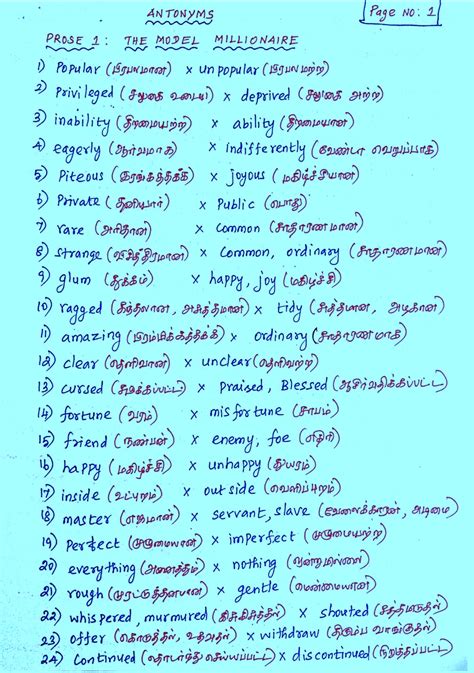 ANTONYMS
Page No: 1
PROSE 1: THE MODEL MILLIONAIRE
1) Popular (பிரபலமான) x unpopular (பிரபலமற்ற)
2) Privileged (சலுகை உடைய) x deprived (சலுகை அற்ற)
3) inability (திறமையற்ற) x ability (திறமையான)
4) eagerly (ஆர்வமாக) x Indifferently (வேண்டா வெறுப்பாக)
5) Piteous (இரங்கத்தக்க) x joyous (மகிழ்ச்சியான)
6) Private (தனியார்) x Public (பொது)
7) rare (அரிதான) x Common (சாதாரணமான)
8) strange (விசித்திரமான) x Common, ordinary (சாதாரணமான)
9) glum (துக்கம்) x happy, joy (மகிழ்ச்சி)
10) ragged (கிழிந்த, அசுத்தமான) x tidy (சுத்தமான, அழகான)
11) amazing (பிரம்மிக்கத்தக்க) x ordinary (சாதாரணமாக)
12) clear (தெளிவான) x unclear (தெளிவற்ற)
13) cursed (சபிக்கப்பட்ட) x Praised, Blessed (ஆசிர்வதிக்கப்பட்ட)
14) fortune (வரம்) x misfortune (சாபம்)
15) friend (நண்பன்) x enemy, foe (எதிரி)
16) happy (மகிழ்ச்சி) x unhappy (துயரம்)
17) inside (உட்புறம்) x outside (வெளிப்புறம்)
18) master (எஜமான்) x servant, slave (வேலைக்காரன், அடிமை)
19) Perfect (முழுமையான) x imperfect (முழுமையற்ற)
20) everything (அனைத்தும்) x nothing (ஒன்றுமில்லை)
21) rough (முரட்டுத்தனமான) x gentle (மென்மையான)
22) whispered, murmured (கிசுகிசுத்தல்) x shouted (சத்தமிடுதல்)
23) offer (கொடுத்தல், உதவுதல்) x withdraw (திரும்ப வாங்குதல்)
24) Continued (தொடர்ந்து செய்யப்பட்ட) x discontinued (நிறுத்தப்பட்ட)